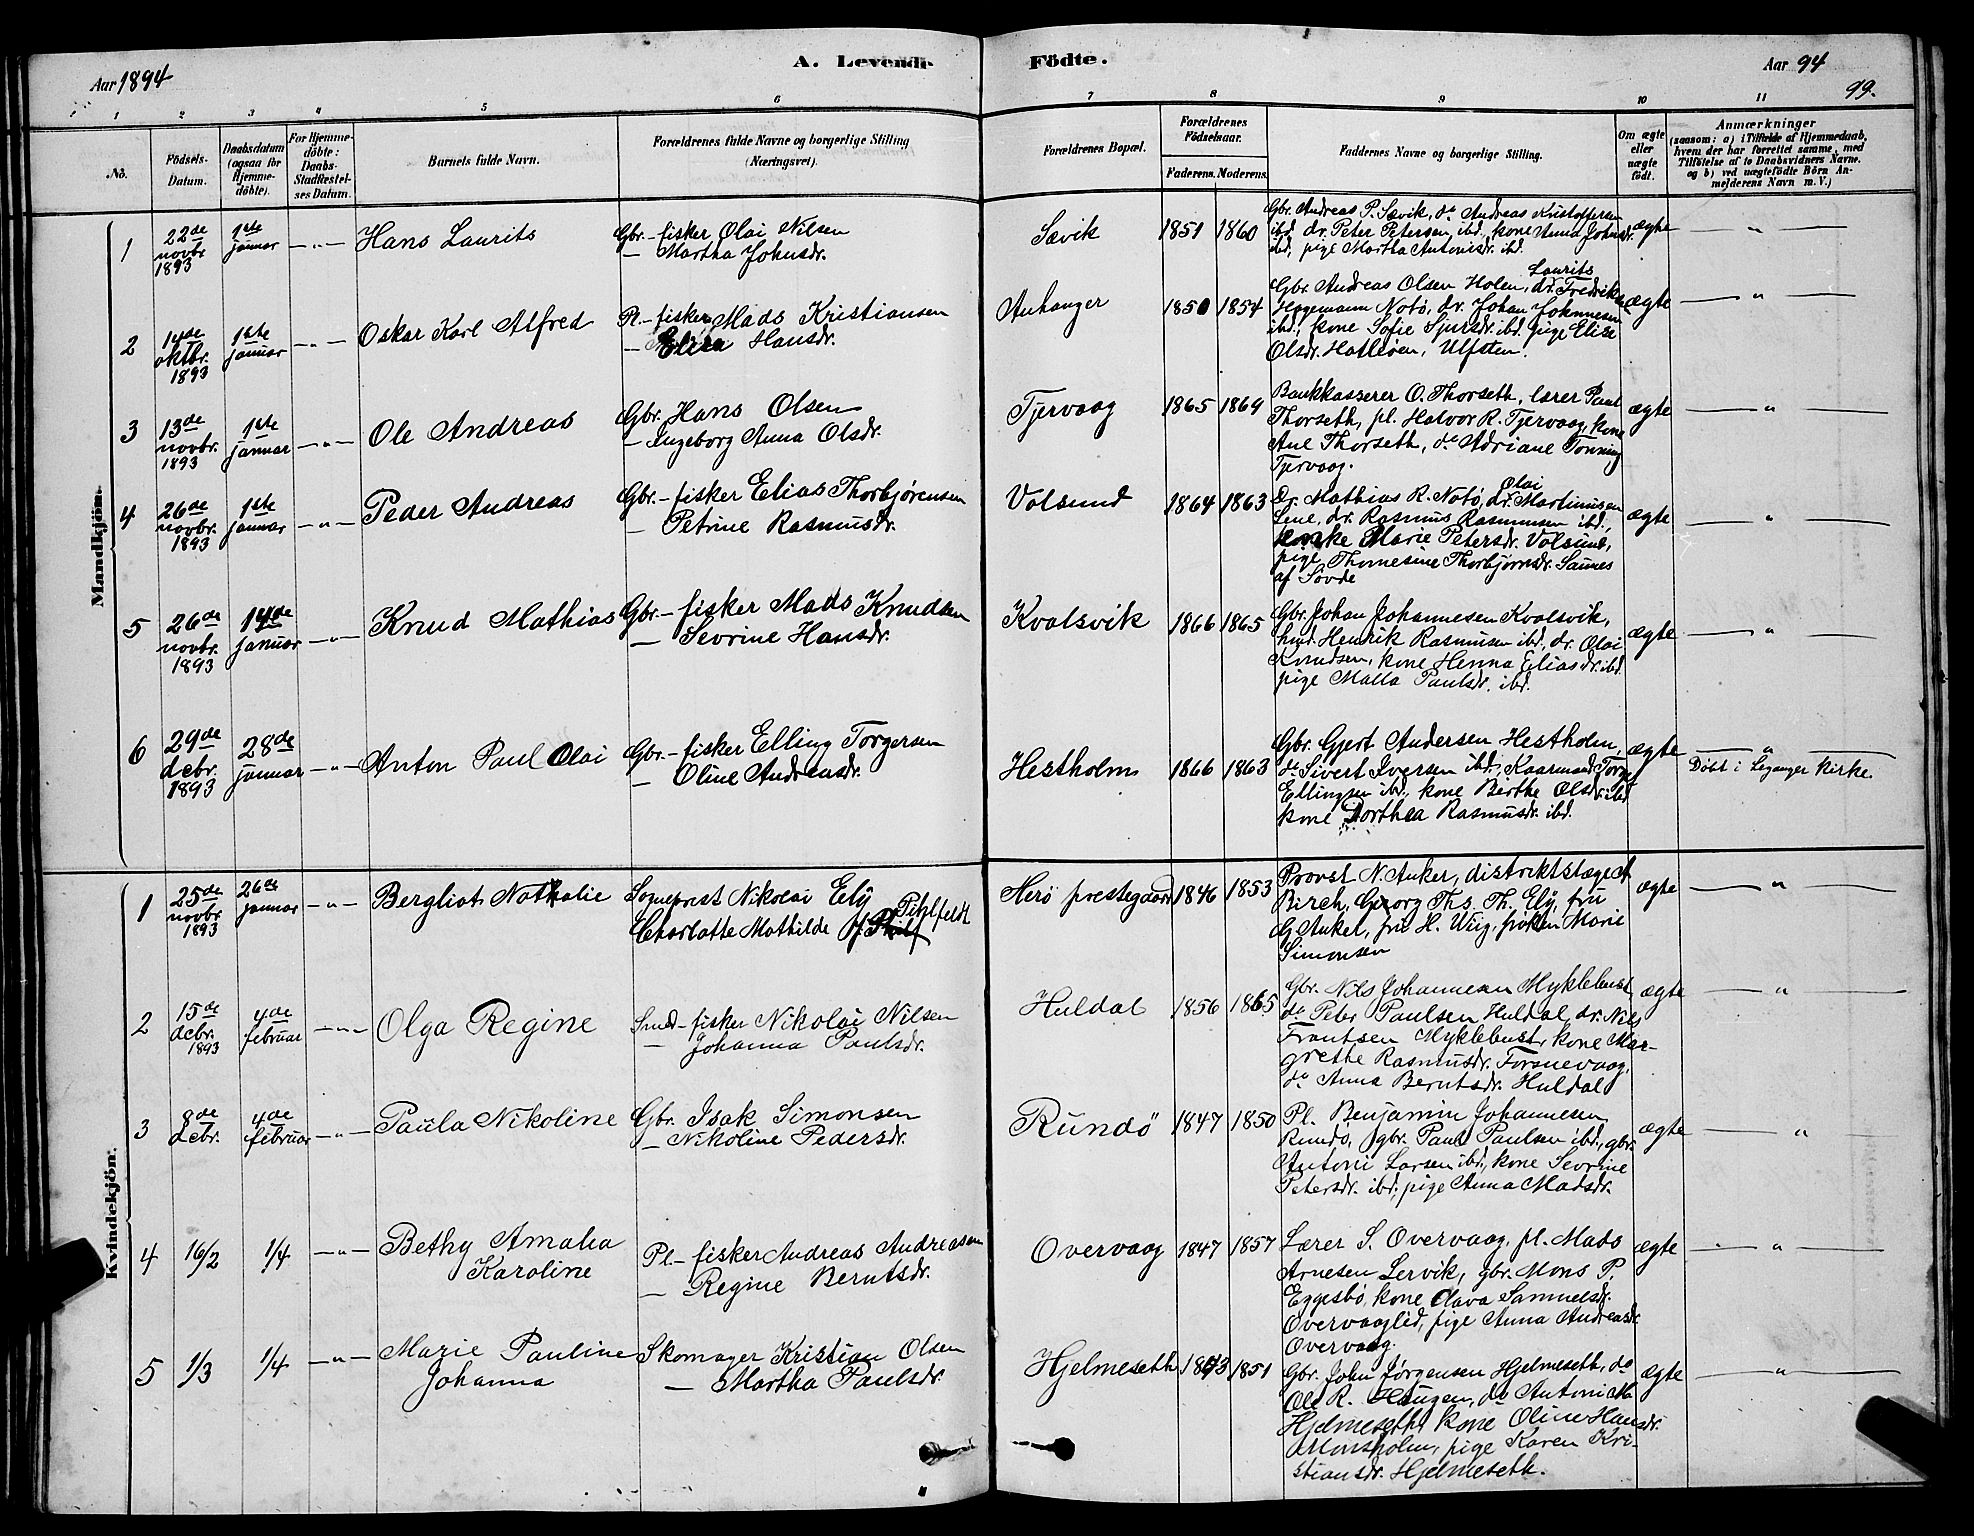 Aar 1894
A. Levende
Födte.
Aar 94
99.
1 2 3 4 5 6 7 8 9 10 11
No.
Födsels-Datum.
Daabsdatum (ogsaa for Hjemme-döbte).
For Hjemme-döbte: Daabs-Stadfæstel-ses Datum.
Barnets fulde Navn.
Forældrenes fulde Navne og borgerlige Stilling (Næringsvei).
Forældrenes Bopæl.
Forældrenes Födselsaar.
Faderens. Moderens.
Faddernes Navne og borgerlige Stilling.
Om ægte eller uægte födt.
Anmærkninger
(saasom: a) i Tilfælde af Hjemmedaab, hvem der har forrettet samme, med Tilföielse af to Daabsvidners Navne. og b) ved uægtefödte Börn Anmelderens Navn m. V.)
Mandkjön.
1 22de novbr. 1893 1ste januar —"— Hans Laurits
Gbr.-fisker Olai Nilsen
— Martha Johnsdr.
Sævik 1851 1860
Gbr. Andreas P. Sævik, do Andreas Kristoffersen
ibd. dr. Peter Petersen, ibd., kone Anna Johnsdr.
ibd., pige Martha Antonisdr. ibd.
ægte — " —
2 14de oktbr. 1893 1ste januar —"— Oskar Karl Alfred
Pl.-fisker Mads Kristiansen
— Elisa Hansdr.
Anhanger 1850 1854
Laurits
Gbr. Andreas Olsen Holen, dr. Fredrik
Heggemann Notö, dr. Johan Johannesen
ibd., kone Sofie Sjursdr. ibd. pige Elise
Olsdr. Hatløen, Ulfsten.
ægte — " —
3 13de novbr. 1893 1ste januar —"— Ole Andreas
Gbr. Hans Olsen
— Ingeborg Anna Olsdr.
Tjervaag 1865 1869
Bankkasserer O. Thorseth, lærer Paul
Thorseth, pl. Halvor R. Tjervaag, kone
Ane Thorseth, do Adriane Tonning
Tjervaag.
ægte — " —
4 26de novbr. 1893 1ste januar —"— Peder Andreas
Gbr.-fisker Elias Thorbjørensen
— Petrine Rasmusdr.
Volsund 1864 1863
Olai
Dr. Mathias R. Notö, dr. Martinusen
Lene, dr. Rasmus Rasmusen ibd.,
Marie Petersdr. Volsund,
pige Thomesine Thorbjørnsdr. Saunes
af Sövde
ægte — " —
5 26de novbr. 1893 14de januar —"— Knud Mathias
Gbr.-fisker Mads Knudsen
— Sevrine Hansdr.
Kvalsvik 1866 1865
Gbr. Johan Johannesen Kvalsvik,
Henrik Rasmusen ibd., dr. Olai
Knudsen, kone Henna Eliasdr. ibd.
pige Malla Paulsdr. ibd.
ægte — " —
6 29de debr. 1893 28de januar —"— Anton Paul Olai
Gbr.-fisker Elling Torgersen
— Oline Andreasdr.
Hestholm 1866 1863
Gbr. Gjert Andersen Hestholm,
do Sivert Iversen ibd., Kaarmand Torger
Ellingsen ibd., kone Birthe Olsdr. ibd
kone Dorthea Rasmusdr. ibd.
ægte — " —
Døbt i Leganger kirke.
Kvindekjön.
1 25de novbr. 1893 26de januar —"— Bergliot Nathalie
Sogneprest Nikolai Ely
Charlotte Mathilde f. Petzlfeldt
Herö prestegaard 1846 1853
Provst N. Anker, distriktslæge A
Birch, Georg Ths. Th. Ely, fru
G. Anker, fru H. Wiig, frøken Marie
Simonsen
ægte — " —
2 15de debr. 1893 4de februar —"— Olga Regine
Smed-fisker Nikolai Nilsen
— Johanna Paulsdr.
Huldal 1856 1865
Gbr. Nils Johannesen Myklebust,
do Peter Paulsen Huldal, dr. Nils
Frantsen Myklebust, kone Mar-
grethe Rasmusdr. Torsnevaag,
do Anna Berntsdr. Huldal
ægte — " —
3 8de debr. 4de februar —"— Paula Nikoline
Gbr. Isak Simonsen
— Nikoline Pedersdr.
Rundö 1847 1850
Pl. Benjamin Johannesen
Rundö, gbr. Paul Paulsen ibd., gbr.
Antoni Larsen ibd., kone Sevrine
Petersdr. ibd., pige Anna Madsdr.
ægte — " —
4 16/2 1/4 —"— Bethy Amalia
Karoline
Pl.-fisker Andreas Andreasen
— Regine Berntsdr.
Overvaag 1847 1857
Lærer S. Overvaag, pl. Mads
Arnesen Lervik, gbr. Mons P.
Eggesbö, kone Olava Samuelsdr.
Overvaaglid, pige Anna Andreasdr.
Overvaag.
ægte — " —
5 1/3 1/4 —"— Marie Pauline
Johanna
Skomager Kristian Olsen
— Martha Paulsdr.
Hjelmeseth 1843 1851
Gbr. John Jørgensen Hjelmeseth, do
Ole R. Haugen, do Antoni M.
Hjelmeseth, kone Oline Hansdr.
Monsholm, pige Karen Kri-
stiansdr. Hjelmeseth.
ægte — " —